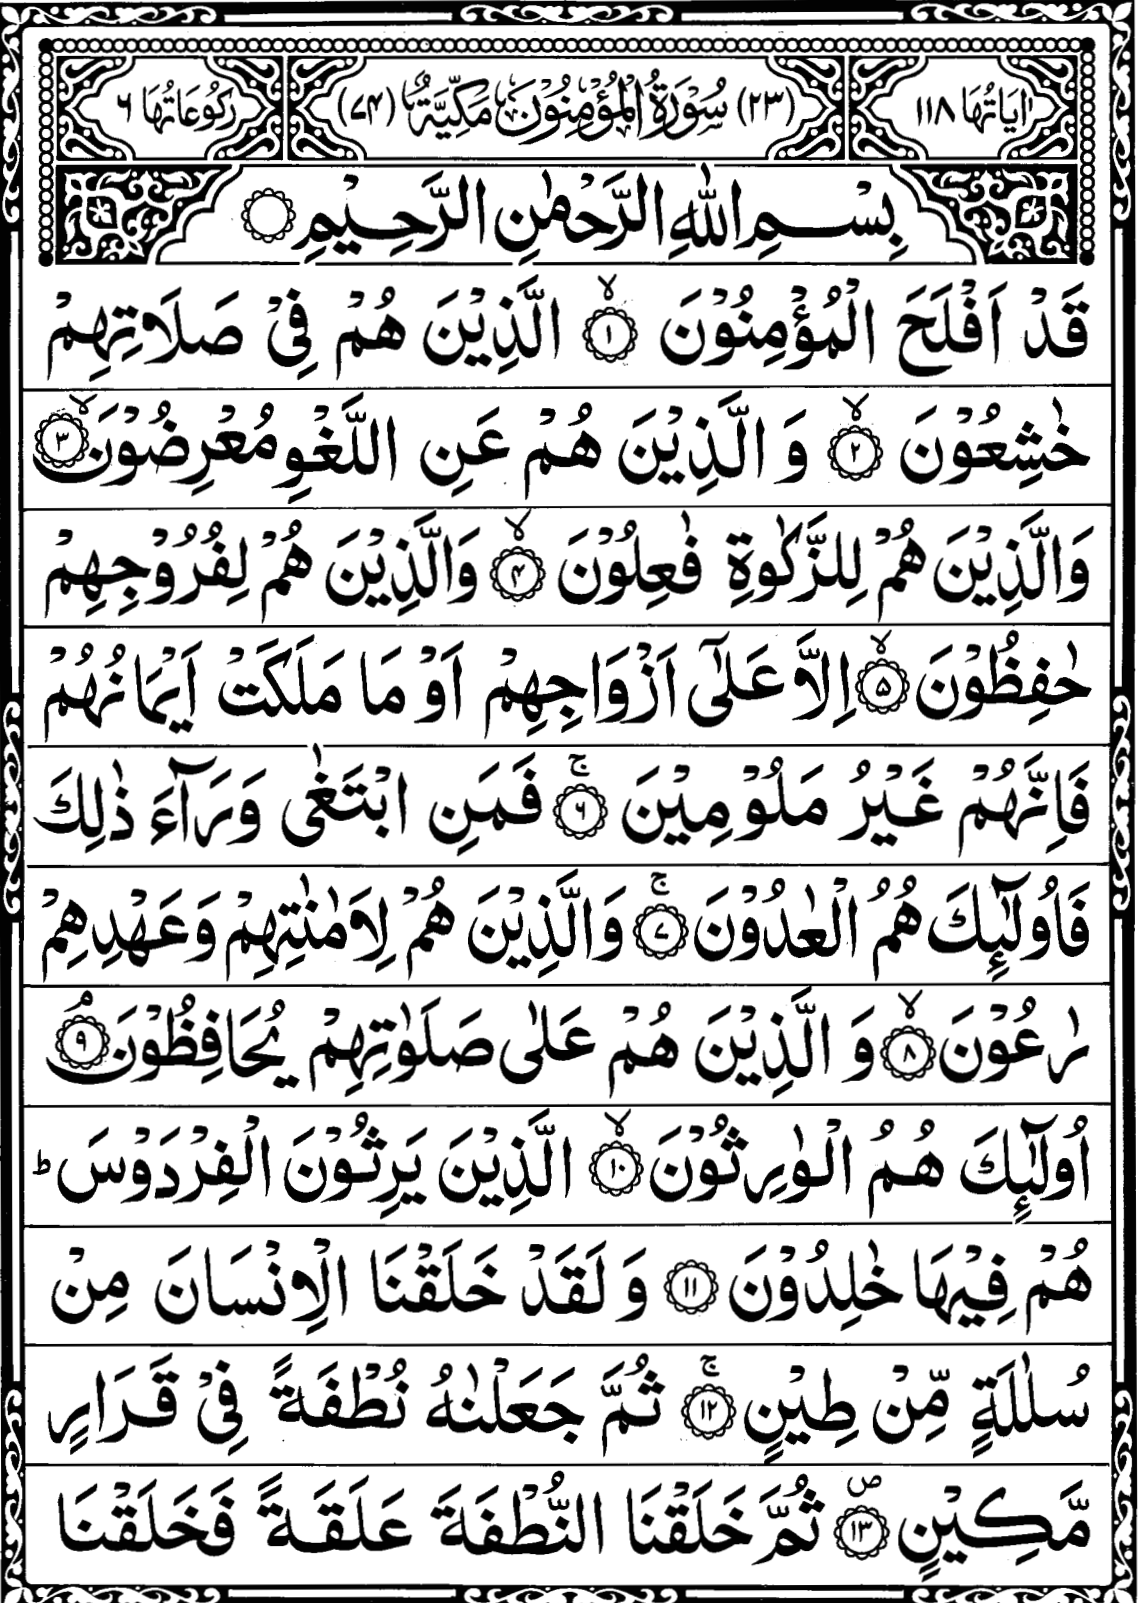 اٰيَاتُهَا ١١٨ (٢٣) سُوْرَةُ الْمُؤْمِنُوْنَ مَكِّيَّةٌ (٧٤) رُكُوْعَاتُهَا ٦
بِسْمِ اللّٰهِ الرَّحْمٰنِ الرَّحِيْمِ
قَدْ اَفْلَحَ الْمُؤْمِنُوْنَ ۙ‏﴿١﴾ الَّذِيْنَ هُمْ فِىْ صَلَاتِهِمْ
خٰشِعُوْنَ ۙ‏﴿٢﴾ وَالَّذِيْنَ هُمْ عَنِ اللَّغْوِ مُعْرِضُوْنَ ۙ‏﴿٣﴾
وَالَّذِيْنَ هُمْ لِلزَّكٰوةِ فٰعِلُوْنَ ۙ‏﴿٤﴾ وَالَّذِيْنَ هُمْ لِفُرُوْجِهِمْ
حٰفِظُوْنَ ۙ‏﴿٥﴾ اِلَّا عَلٰٓى اَزْوَاجِهِمْ اَوْ مَا مَلَكَتْ اَيْمَانُهُمْ
فَاِنَّهُمْ غَيْرُ مَلُوْمِيْنَ ۚ‏﴿٦﴾ فَمَنِ ابْتَغٰى وَرَآءَ ذٰلِكَ
فَاُولٰٓئِكَ هُمُ الْعٰدُوْنَ ۚ‏﴿٧﴾ وَالَّذِيْنَ هُمْ لِاَمٰنٰتِهِمْ وَعَهْدِهِمْ
رٰعُوْنَ ۙ‏﴿٨﴾ وَالَّذِيْنَ هُمْ عَلٰى صَلَوٰتِهِمْ يُحَافِظُوْنَ ۘ‏﴿٩﴾
اُولٰٓئِكَ هُمُ الْوٰرِثُوْنَ ۙ‏﴿١٠﴾ الَّذِيْنَ يَرِثُوْنَ الْفِرْدَوْسَ ؕ
هُمْ فِيْهَا خٰلِدُوْنَ ‏﴿١١﴾ وَلَقَدْ خَلَقْنَا الْاِنْسَانَ مِنْ
سُلٰلَةٍ مِّنْ طِيْنٍ ۚ‏﴿١٢﴾ ثُمَّ جَعَلْنٰهُ نُطْفَةً فِىْ قَرَارٍ
مَّكِيْنٍ ۖ‏﴿١٣﴾ ثُمَّ خَلَقْنَا النُّطْفَةَ عَلَقَةً فَخَلَقْنَا